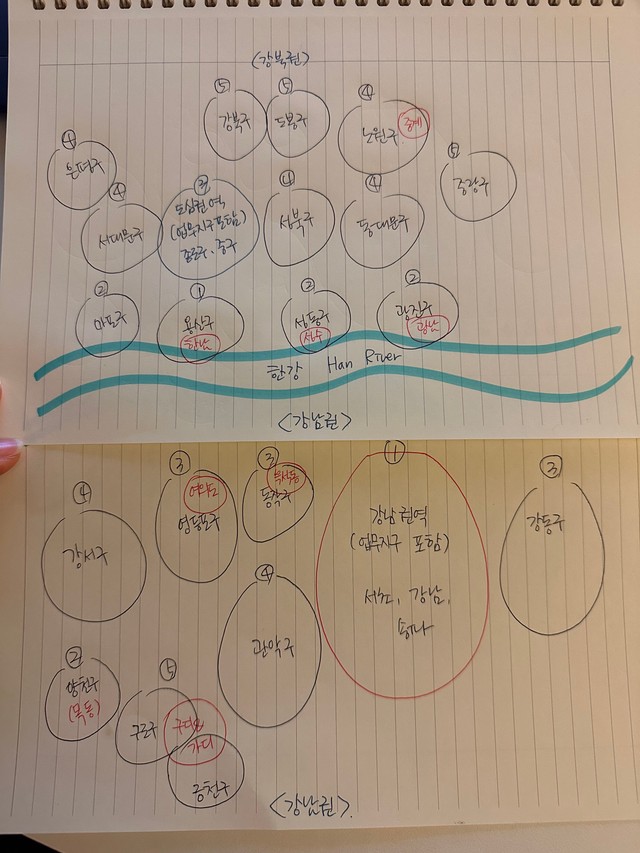 <강북권>
⑤
강북구
⑤
도봉구
④
노원구
중계
④
은평구
⑤
중랑구
④
서대문구
②
도심권역
(업무지구 포함)
종로구, 중구
④
성북구
④
동대문구
②
마포구
①
용산구
한남
②
성동구
성수
②
광진구
광남
한강 Han River
<강남권>
④
강서구
③
여의도
영등포구
③
흑석동
동작구
①
강남권역
(업무지구 포함)
서초, 강남,
송파
③
강동구
④
관악구
②
양천구
(목동)
⑤
구로구
구디&
가디
금천구
<강남권>.